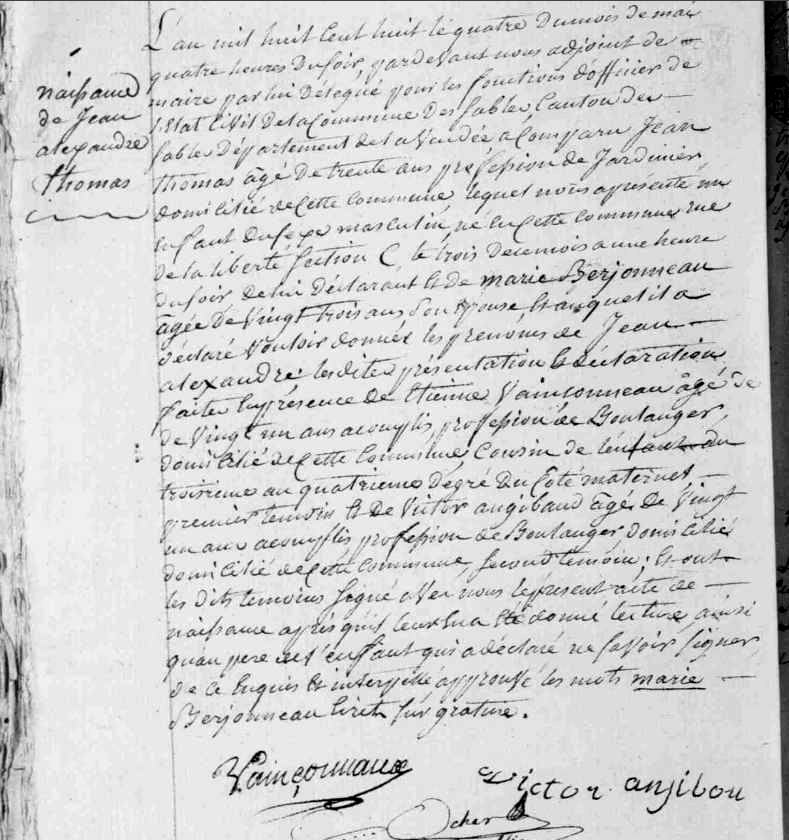 naissance
de Jean
alexandre
thomas
L'an mil huit Cent huit le quatre Dumois de mai
quatre heures Dusoir, pardevant nous adjoint de
maire par lui Délégué pour les fonctions d'officier de
l'Etat Civil De la Commune Des Sables Canton des
Sables Département de la Vendée a Comparu Jean
thomas âgé De trente ans profession de Jardinier,
domicilié de Cette Commune, lequel nous a présenté un
Enfant du sexe masculin, né En Cette Commune rue
De la liberté Section C, le trois De ce mois a une heure
du soir de lui Déclarant Et de marie Berjonneau
âgée De Vingt trois ans Son Epouse Et auquel il a
déclaré Vouloir donner les prenoms de Jean
alexandre. les dites présentation Et déclaration
faites En présence de Etienne Vainsonneau âgé de
de Vingt un ans acomplis, profession de Boulanger,
domicilié de Cette Commune Cousin de l'enfant du
troisieme au quatrieme Dégré Du Coté maternel
premier temoin Et De Victor angibaud âgé De Vingt
un ans acomplis profession de Boulanger domicilié
domicilié de Cette Commune, Second temoin; Et ont
les dits temoins Signé aVec nous le présent acte de
naissance après qu'il leur En a Eté donné lecture ainsi
qu'au pere de l'enfant qui a déclaré ne Savoir Signer
De Ce Enquis Et interpellé approuvé les mots marie
Berjonneau Ecrits sur grature.
Vainçonnaux Victor anjibou